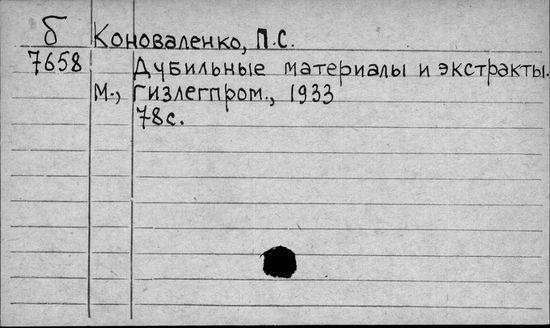 б Коноваленко, П.С.
7658 Дубильные материалы и экстракты.
М., Гизлегпром., 1933
78с.